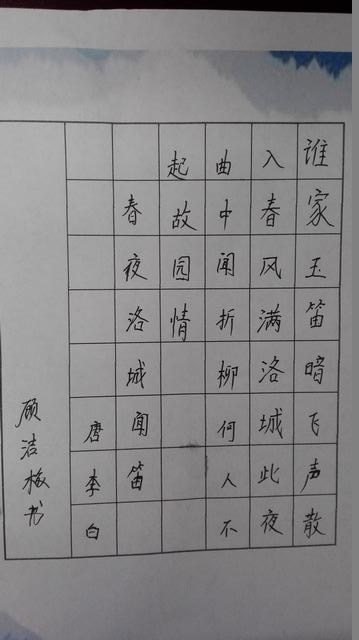 谁家玉笛暗飞声散
入春风满洛城此夜
曲中闻折柳何人不
起故园情
春夜洛城闻笛
唐李白
顾洁梅书